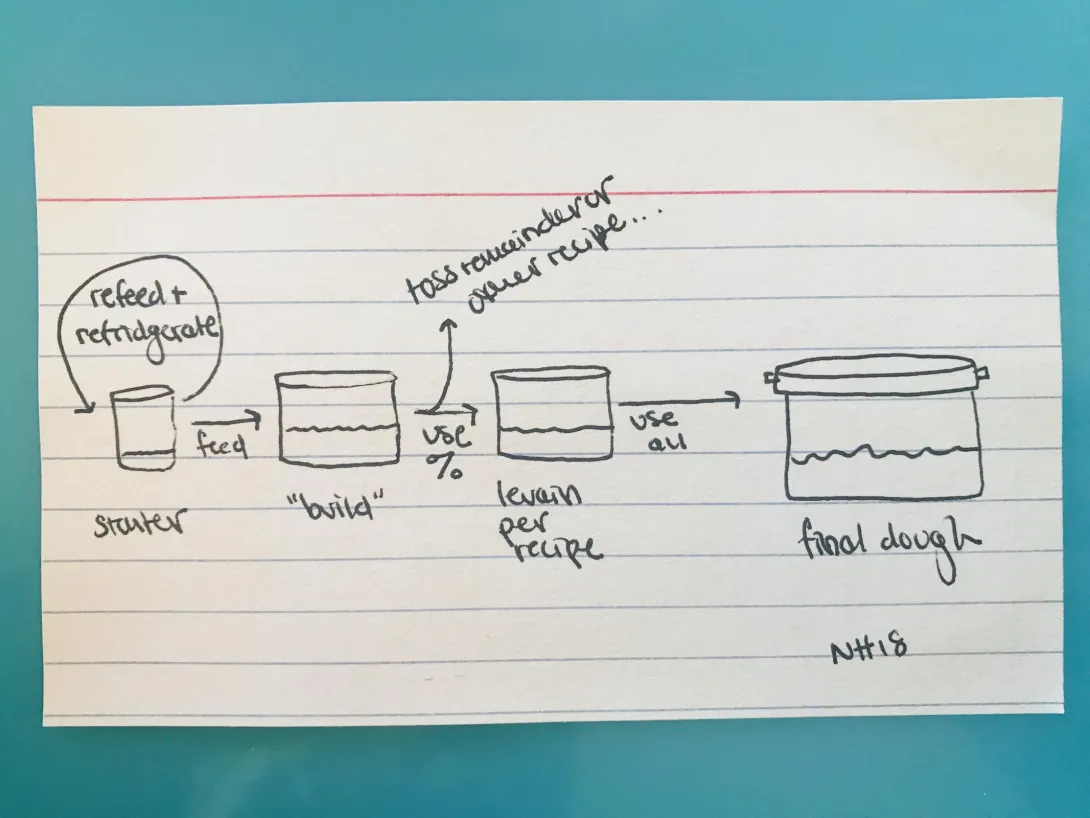 refeed +
refridgerate
toss remainder or
other recipe...
feed
use
%
use
all
starter
"build"
levain
per
recipe
final dough
NH18